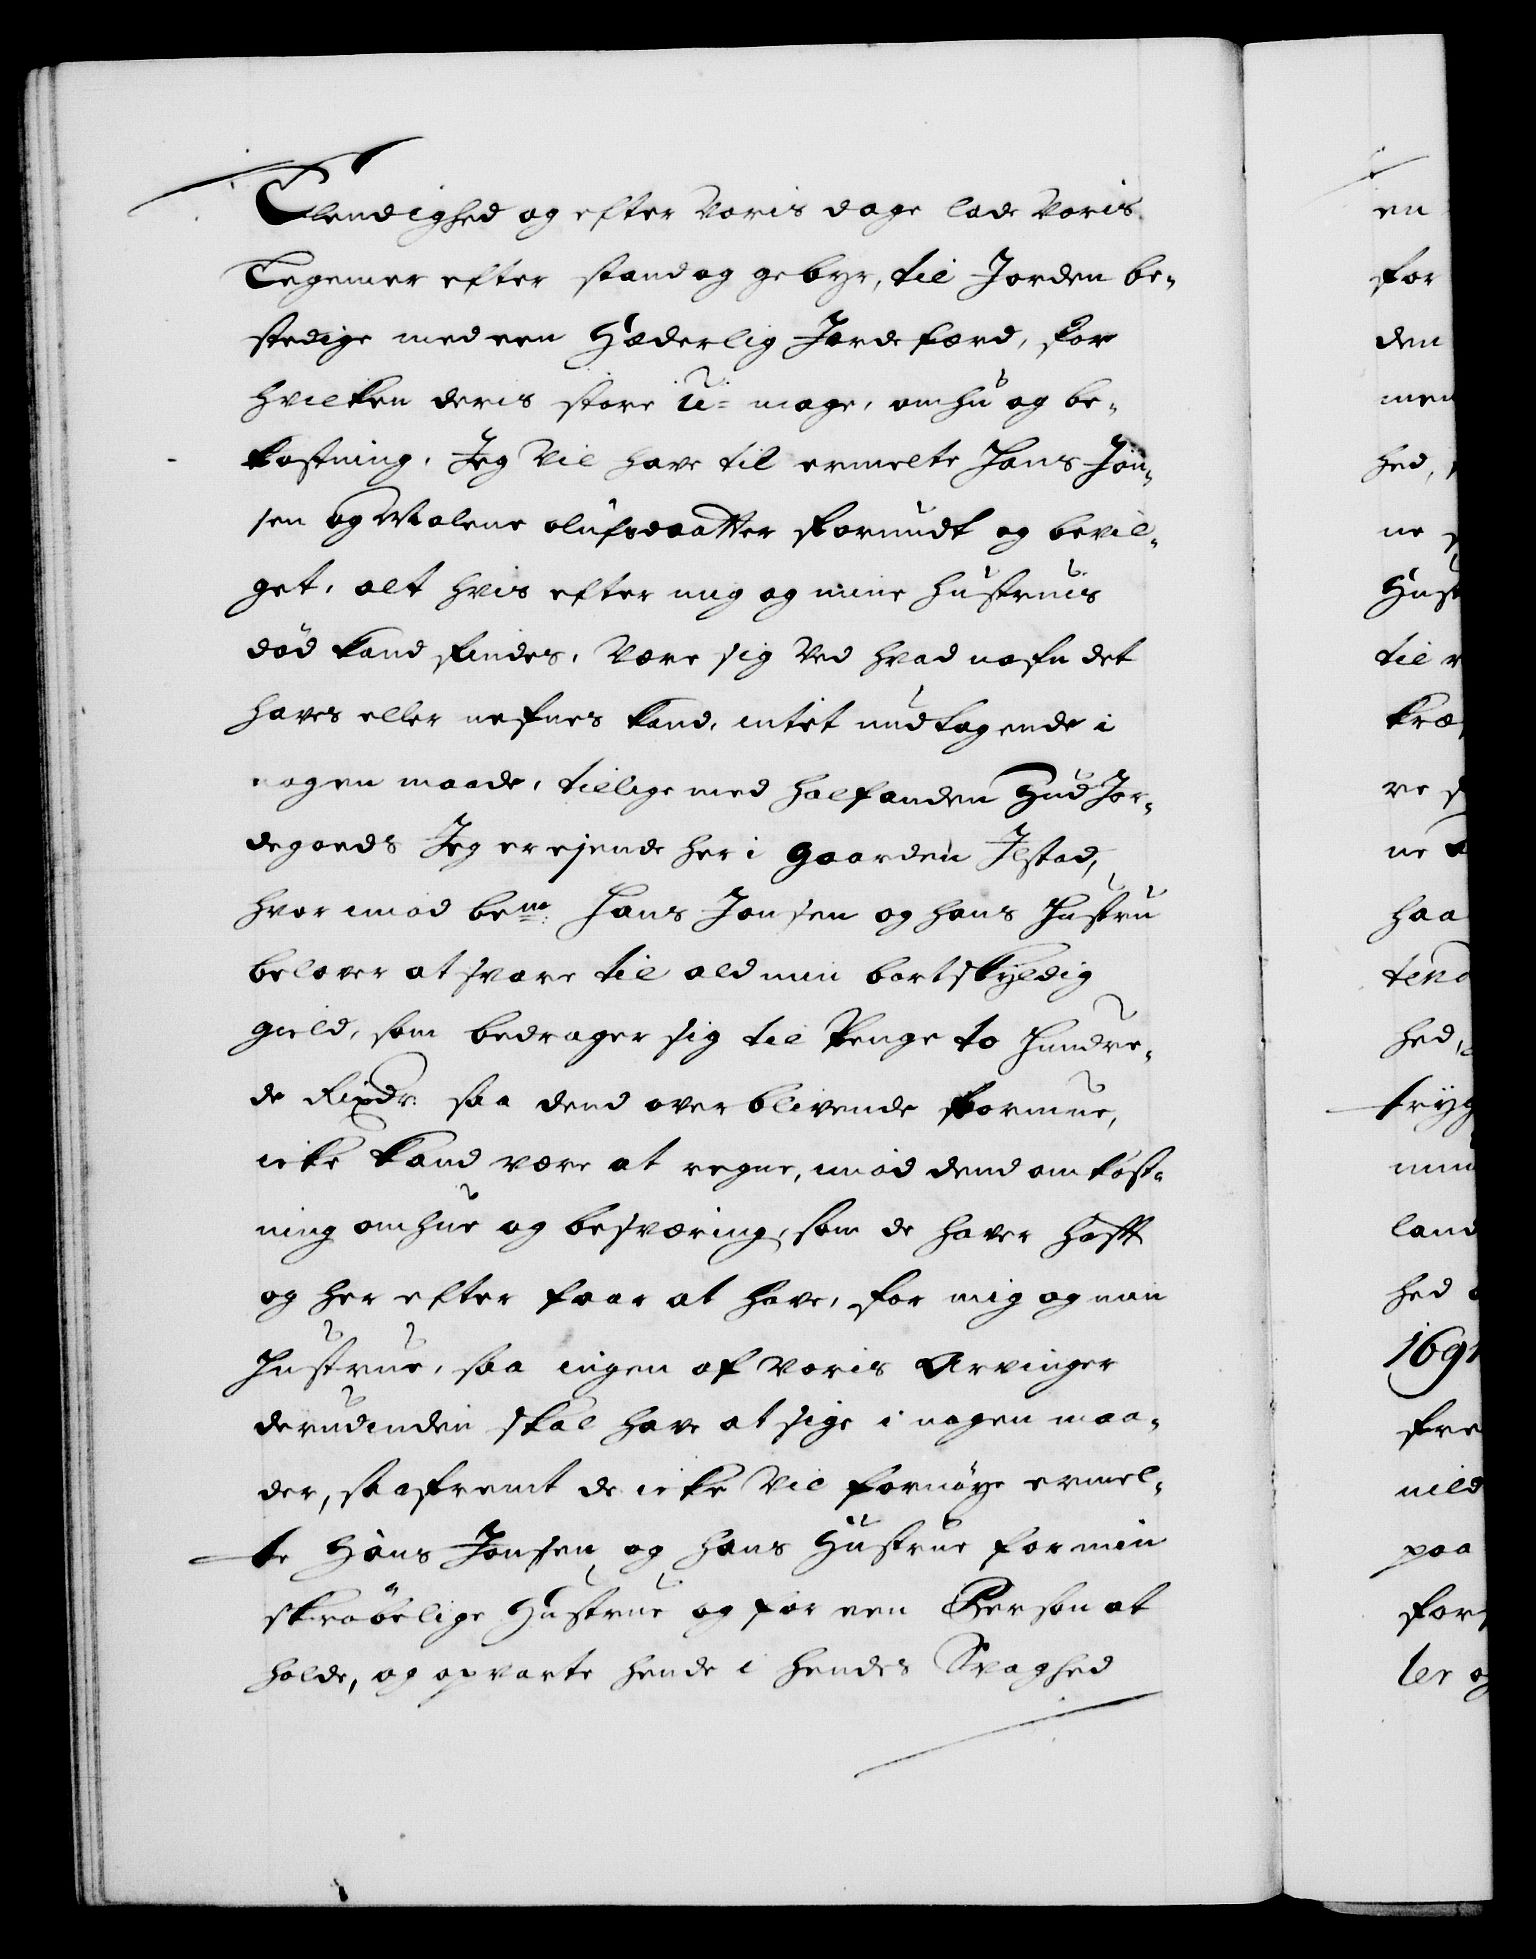 Elendighed og efter Voris dage lade Voris
Legemer efter stand og gebyr, til Jorden be-
stedige med een Hæderlig Jordefærd, for
hvilken deris store U-mage, omhu og be-
kostning, Jeg Vil have til ermelte Hans Jon-
sen og Malene olufsdaatter forundt og bevil-
get, alt hvis efter mig og mine Hustruis
död kand findes, Være sig Ved hvad nafn det
haves eller nefnes kand, intet undtagende i
nogen maade, tillige med halfanden Hud Jor-
degoeds Jeg er ejende her i Gaarden Ilstad,
hvor imod bem.te Hans Jonsen og hans Hustru
belover at svare til ald min bortskyldig
gield, som bedrager sig til Penge to Hundre-
de Rixdr: saa dend overblivende formue,
icke kand være at regne, imod dend omkost-
ning omhue og besværing, som de haver hafft
og her efter faar at have, for mig og min
Hustrue, saa ingen af voris Arvinger
derudinden skal have at sige i nogen maa-
der, saafremt de icke Vil fornöye ermel-
te Hans Jonsen og hans Hustrue for min
skröbelige Hustrue og for een Person at
holde, og opvarte hende i hendes Svaghed
en
for
den
men
hed,
ne
Hust
til
kræ
ve
ne
haa
hed,
tryg
land
hed
169
fre
paa
for
ler og